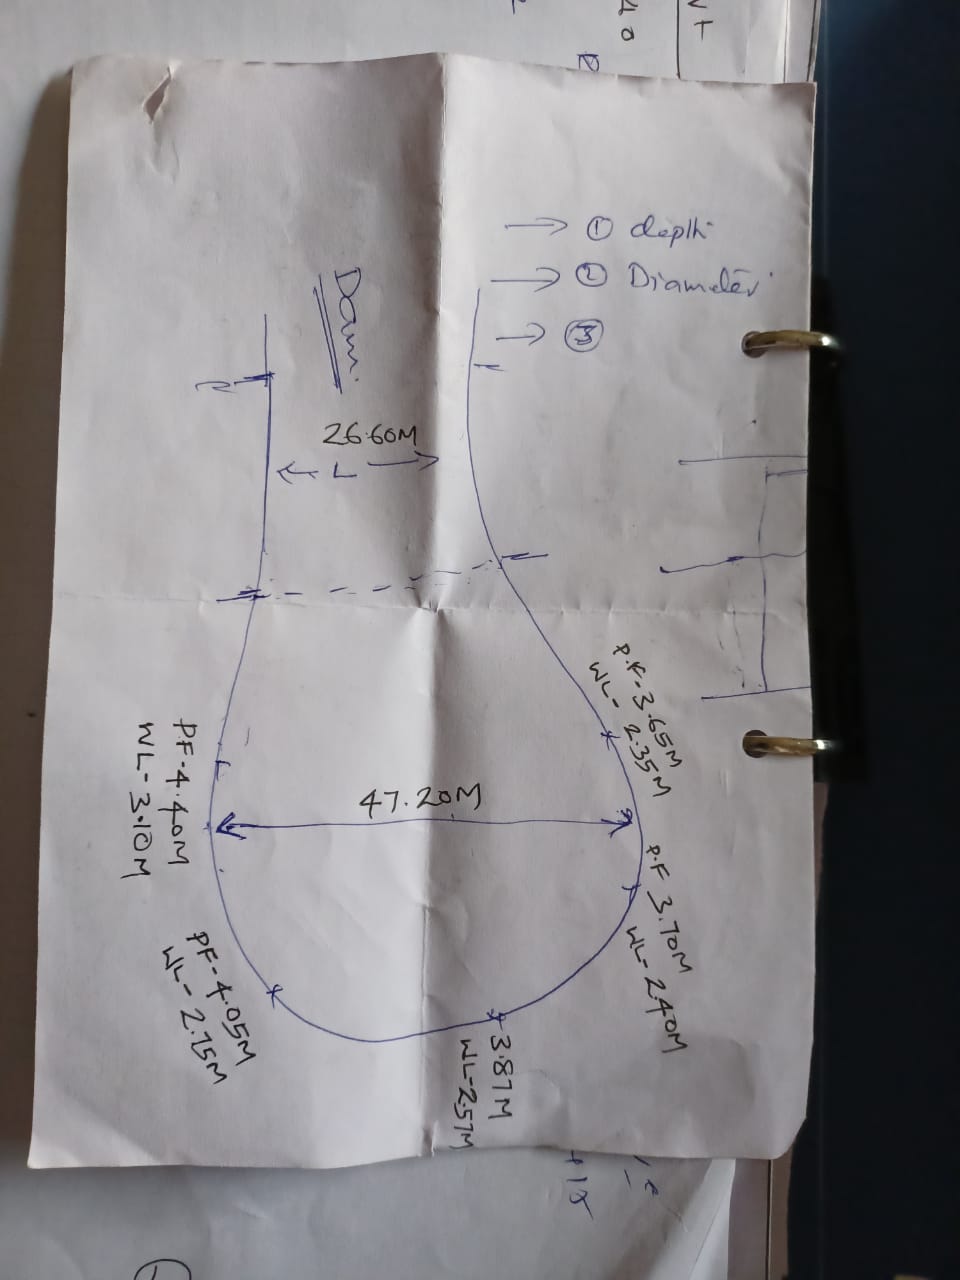 ① depth
② Diameter
③
Dam.
26.60M
L
P.F-3.65M
WL- 2.35M
47.20M
PF-4.40M
WL-3.10M
P.F 3.70M
WL- 2.40M
PF-4.05M
WL- 2.75M
3.87M
WL-2.57M
+10